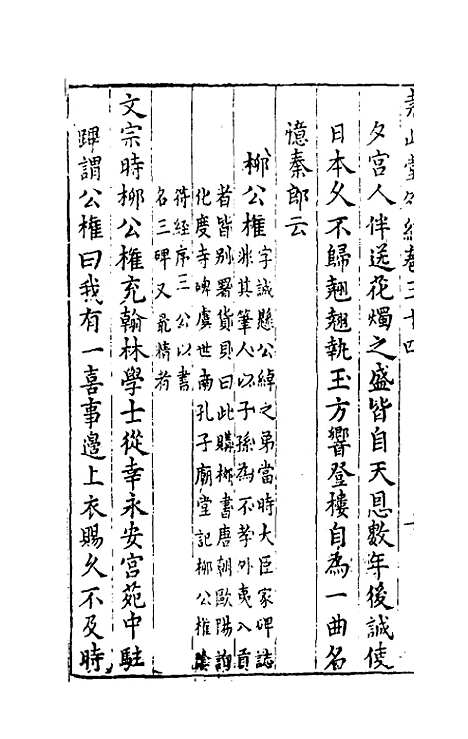 堯山堂外紀卷三十四
夕宮人伴送花燭之盛皆自天恩數年後誠使
日本久不歸翹翹執玉方響登樓自為一曲名
憶秦郎云
柳公權
字誠懸公綽之弟當時大臣家碑誌
非其筆人以子孫為不孝外夷入貢
者皆別署貨貝曰此購柳書唐朝歐陽詢
化度寺碑虞世南孔子廟堂記柳公權陰
符經序三公以書
名三碑又最精者
文宗時柳公權充翰林學士從幸永安宮苑中駐
蹕謂公權曰我有一喜事邊上衣賜久不及時